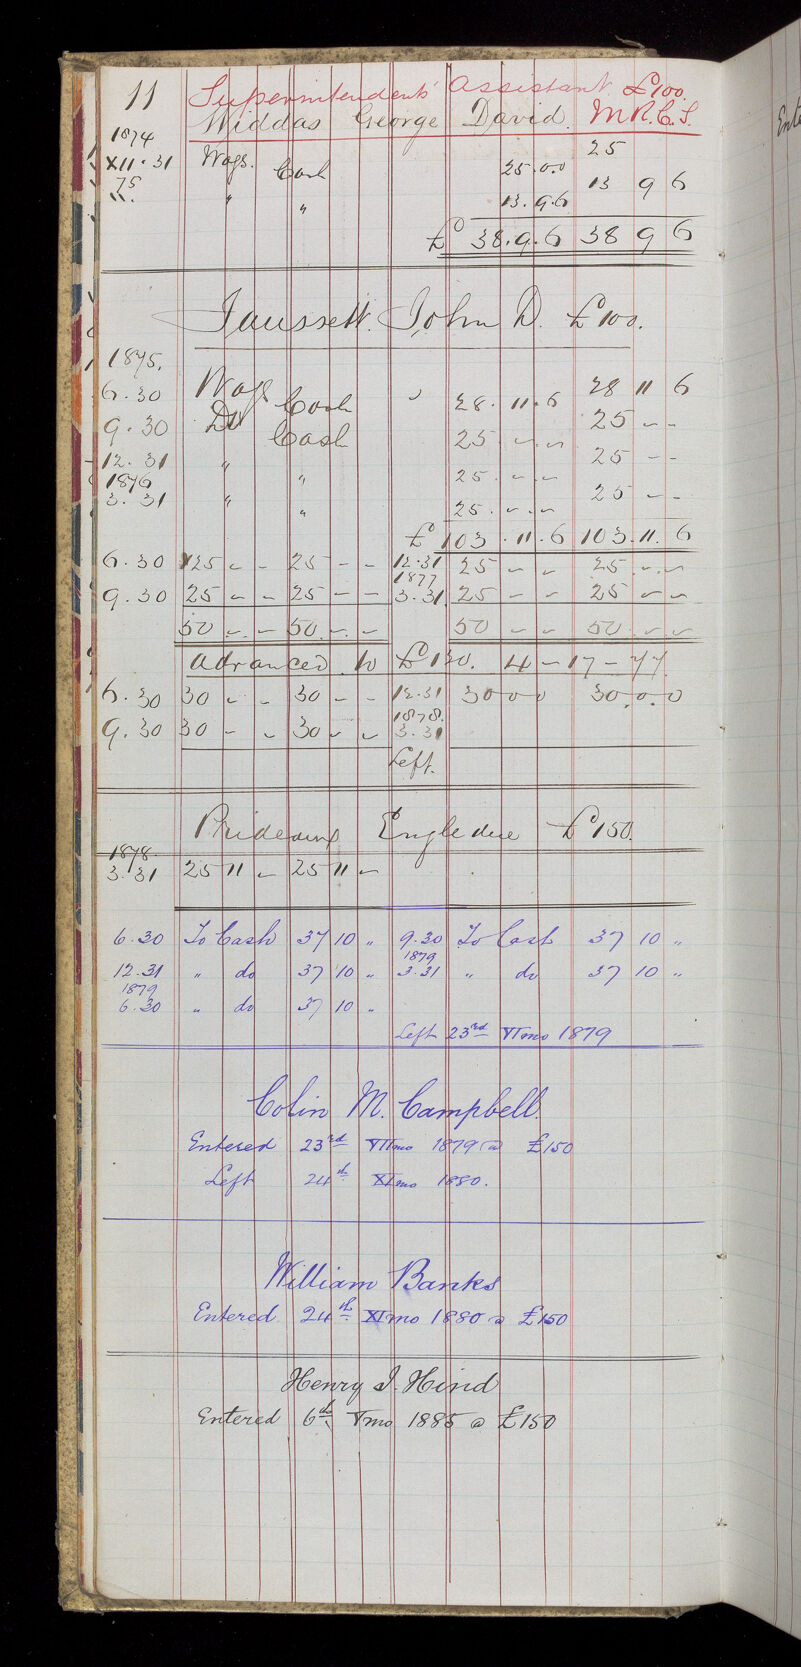 11 Superintendents' Assistant £100.
Widdas George David. M.R.C.S.
1874
XII.31 Wages. Cash 25.0.0 25
75
" " " 13.9.6 13 9 6
£ 38.9.6 38 9 6
John D. £100.
1875.
6.30 Wages Cash " 28.11.6 28 11 6
9.30 Do Cash 25.-.- 25 - -
12.31 " " 25.-.- 25 - -
1876
3.31 " " 25.-.- 25 - -
£ 103.11.6 103.11.6
6.30 25 - - 25 - - 12.31 25 - - 25 - -
1877
9.30 25 - - 25 - - 3.31. 25 - - 25 - -
50 - - 50 - - 50 - - 50 - -
Advanced to £120. 4-17-77.
6.30 30 - - 30 - - 12.31 30 0 0 30.0.0
1878.
9.30 30 - - 30 - - 3.31
Left.
Prideaux Engledue £150.
1878.
3.31 25 11 - 25 11 -
6.30 To Cash 37 10 " 9.30 To Cash 37 10 "
1879
12.31 " do 37 10 " 3.31 " do 37 10 "
1879
6.30 " do 37 10 "
Left 23rd VImo 1879
Colin M. Campbell.
Entered 23rd VIImo 1879 @ £150
Left 24th XImo 1880.
William Banks
Entered 24th XImo 1880 @ £150
Henry J. Hind
Entered 6th Vmo 1885 @ £150
Ente